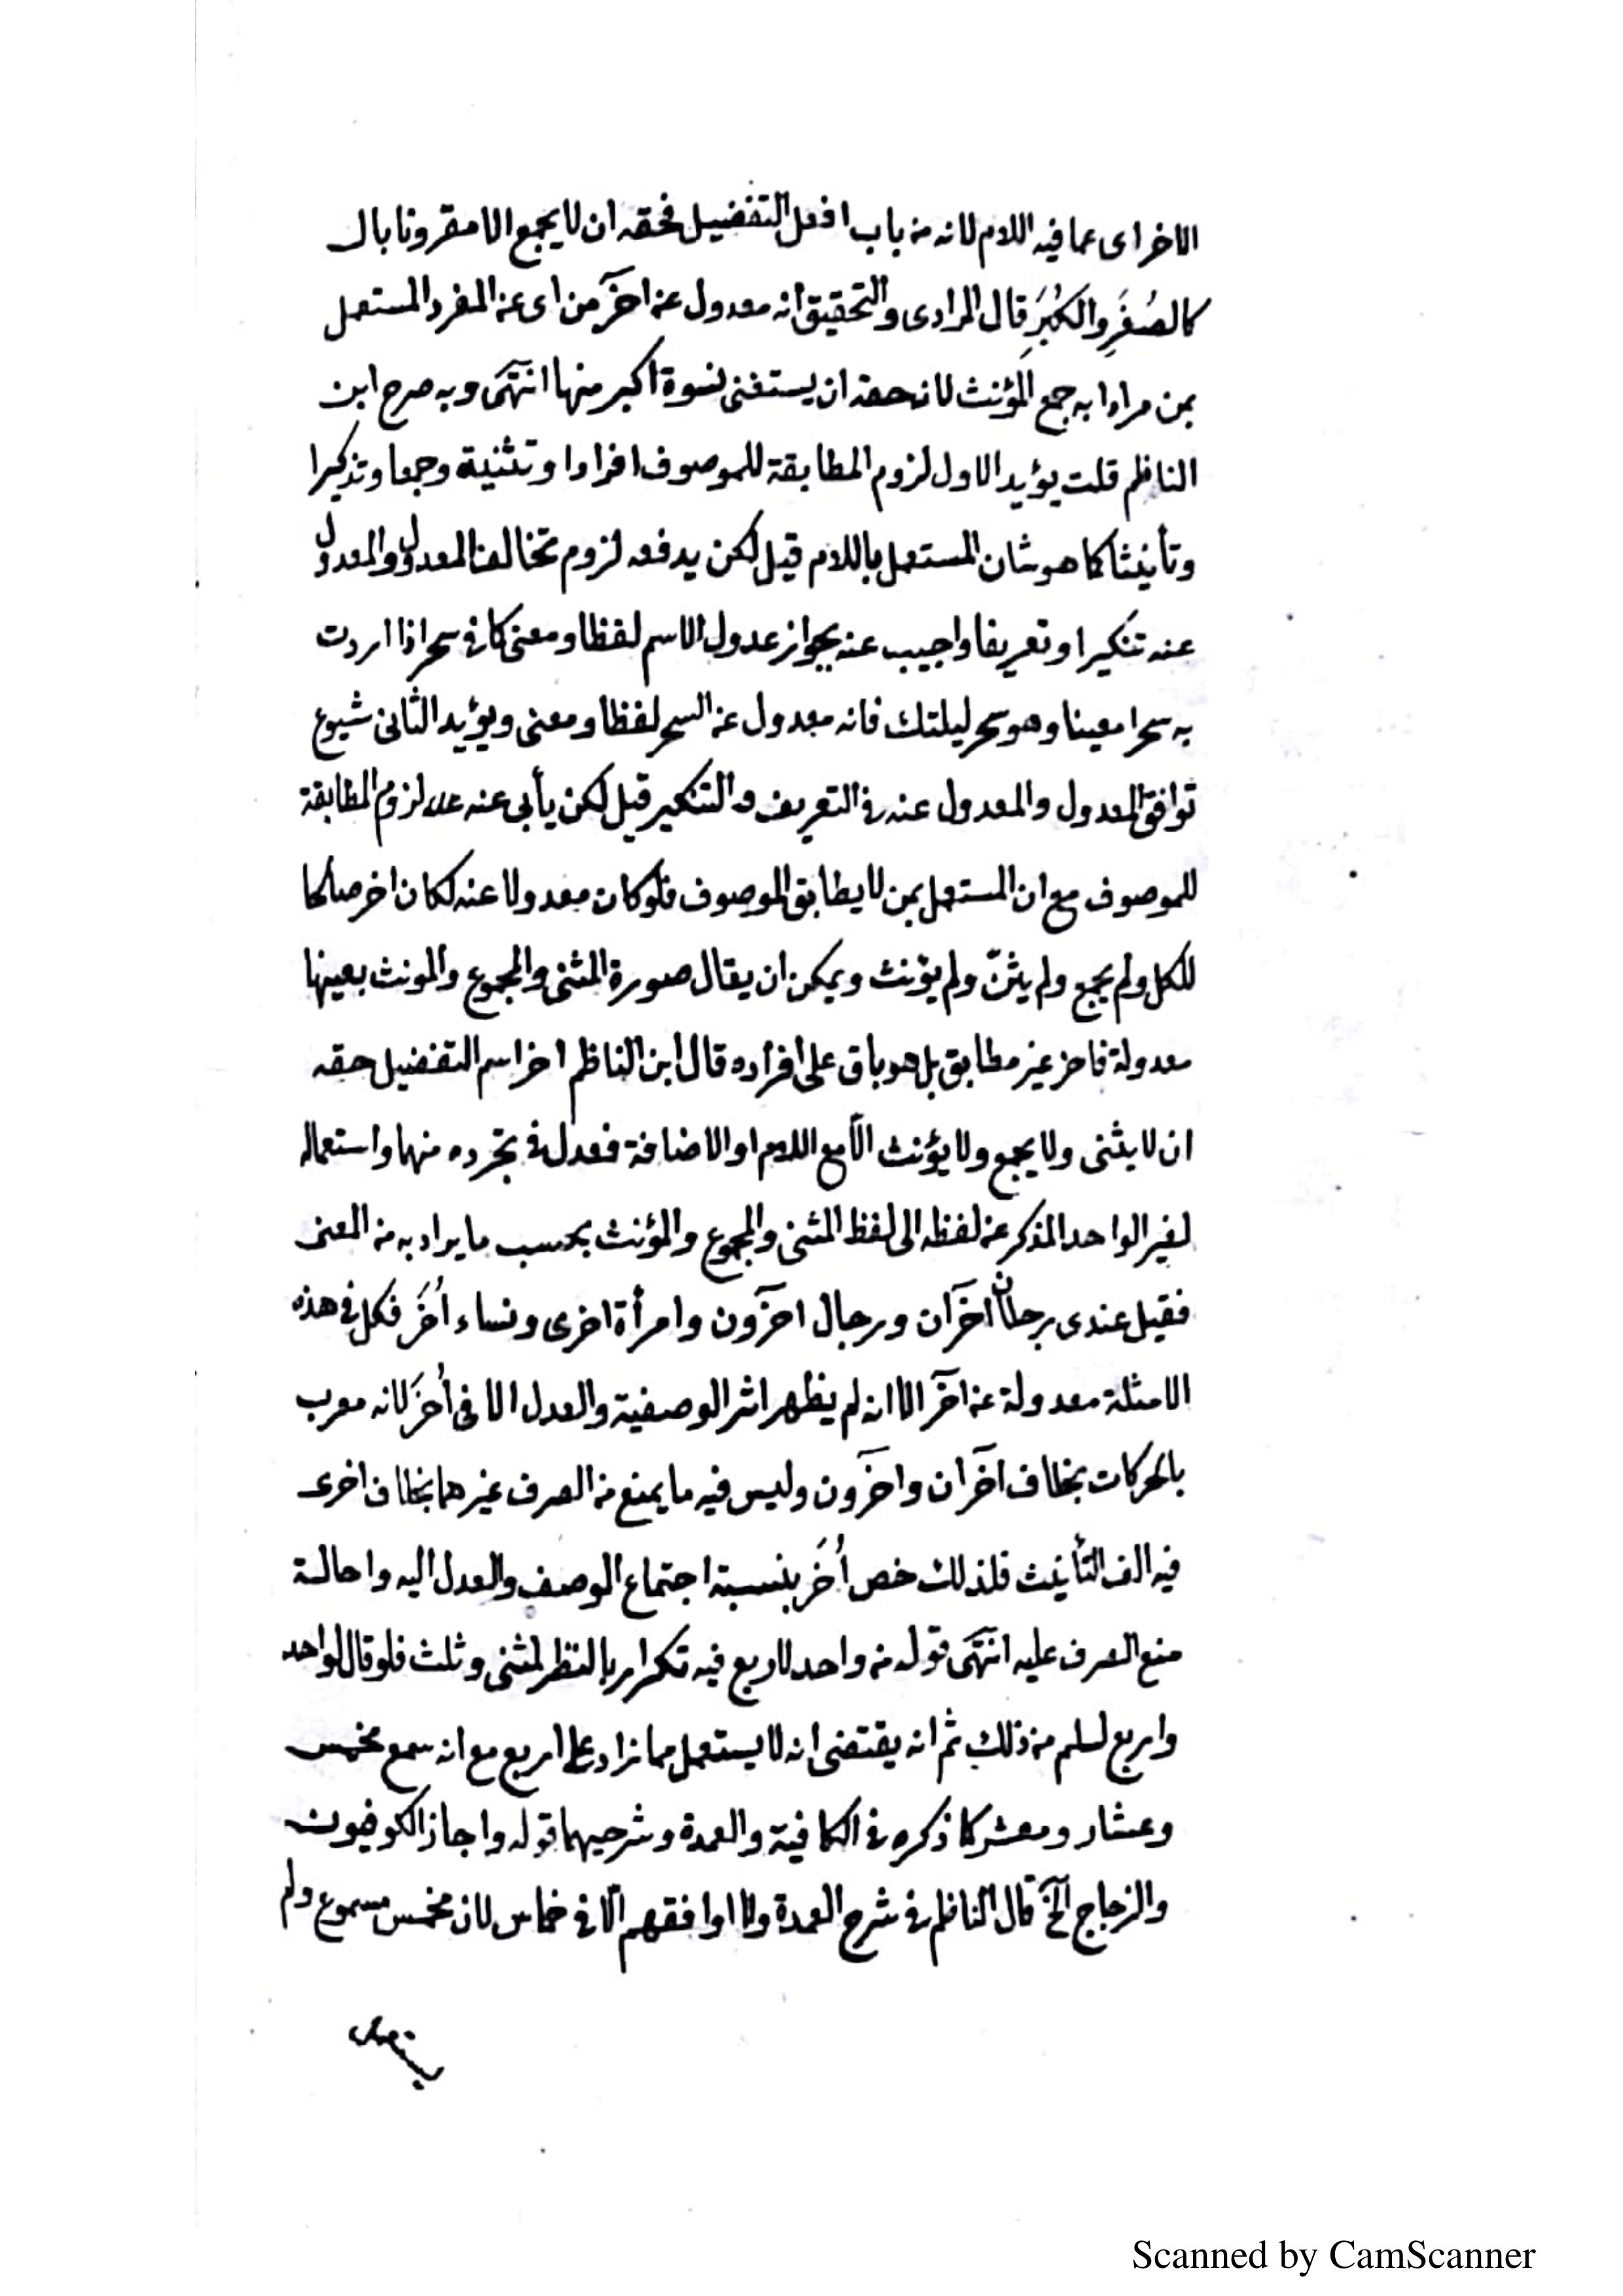 الاخر اى عما فيه اللام لانه من باب افعل التفضيل فحقه ان لا يجمع الا مقرونا بال
كالصُغَرِ والكُبَرِ قال المرادى والتحقيق انه معدول عن اخَرَ من اى عن المفرد المستعمل
بمن مرادا به جمع المؤنث لان حقه ان يستغنى بنسوة اكبر منها انتهى وبه صرح ابن
الناظم قلت يؤيد الاول لزوم المطابقة للموصوف افرادا وتثنية وجمعا وتذكيرا
وتأنيثا كما هو شان المستعمل باللام قيل لكن يدفعه لزوم تخالف المعدول والمعدول
عنه تنكيرا وتعريفا واجيب عنه بجواز عدول الاسم لفظا ومعنى كما فى سحر اذا اردت
به سحرا معينا وهو سحر ليلتك فانه معدول عن السحر لفظا ومعنى ويؤيد الثانى شيوع
توافق المعدول والمعدول عنه فى التعريف والتنكير قيل لكن يأبى عنه لزوم المطابقة
للموصوف مع ان المستعمل بمن لا يطابق الموصوف فلو كان معدولا عنه لكان اخر صالحا
للكل ولم يجمع ولم يثنّ ولم يؤنث ويمكن ان يقال صورة المثنى والمجموع والمونث بعينها
معدولة فاخر غير مطابق بل هو باق على افراده قال ابن الناظم اخر اسم التفضيل حقه
ان لا يثنى ولا يجمع ولا يؤنث الا مع اللام او الاضافة فعدل فى تجرده منهما واستعماله
لغير الواحد المذكر عن لفظه الى لفظ المثنى والمجموع والمؤنث بحسب ما يراد به من المعنى
فقيل عندى رجلان اخَرَان ورجال اخَرون وامرأة اخرى ونساء أُخَر فكل فى هذه
الامثلة معدولة عن اخَر الا انه لم يظهر اثر الوصفية والعدل الا فى أُخَر لانه معرب
بالحركات بخلاف اخَرَان واخَرون وليس فيه ما يمنع من الصرف غيرهما بخلاف اخرى
فيه الف التأنيث فلذلك خص أُخَر بنسبة اجتماع الوصف والعدل اليه واحالة
منع الصرف عليه انتهى قوله من واحد لاربع فيه تكرار بالنظر لمثنى وثلث فلو قال لواحد
واربع لسلم من ذلك ثم انه يقتضى انه لا يستعمل مما زاد على اربع مع انه سمع مخمس
وعشار ومعشر كما ذكره فى الكافية والعمدة وشرحيهما قوله واجاز الكوفيون
والزجاج الخ قال الناظم فى شرح العمدة ولا اوافقهم الا فى خماس لان مخمس مسموع ولم